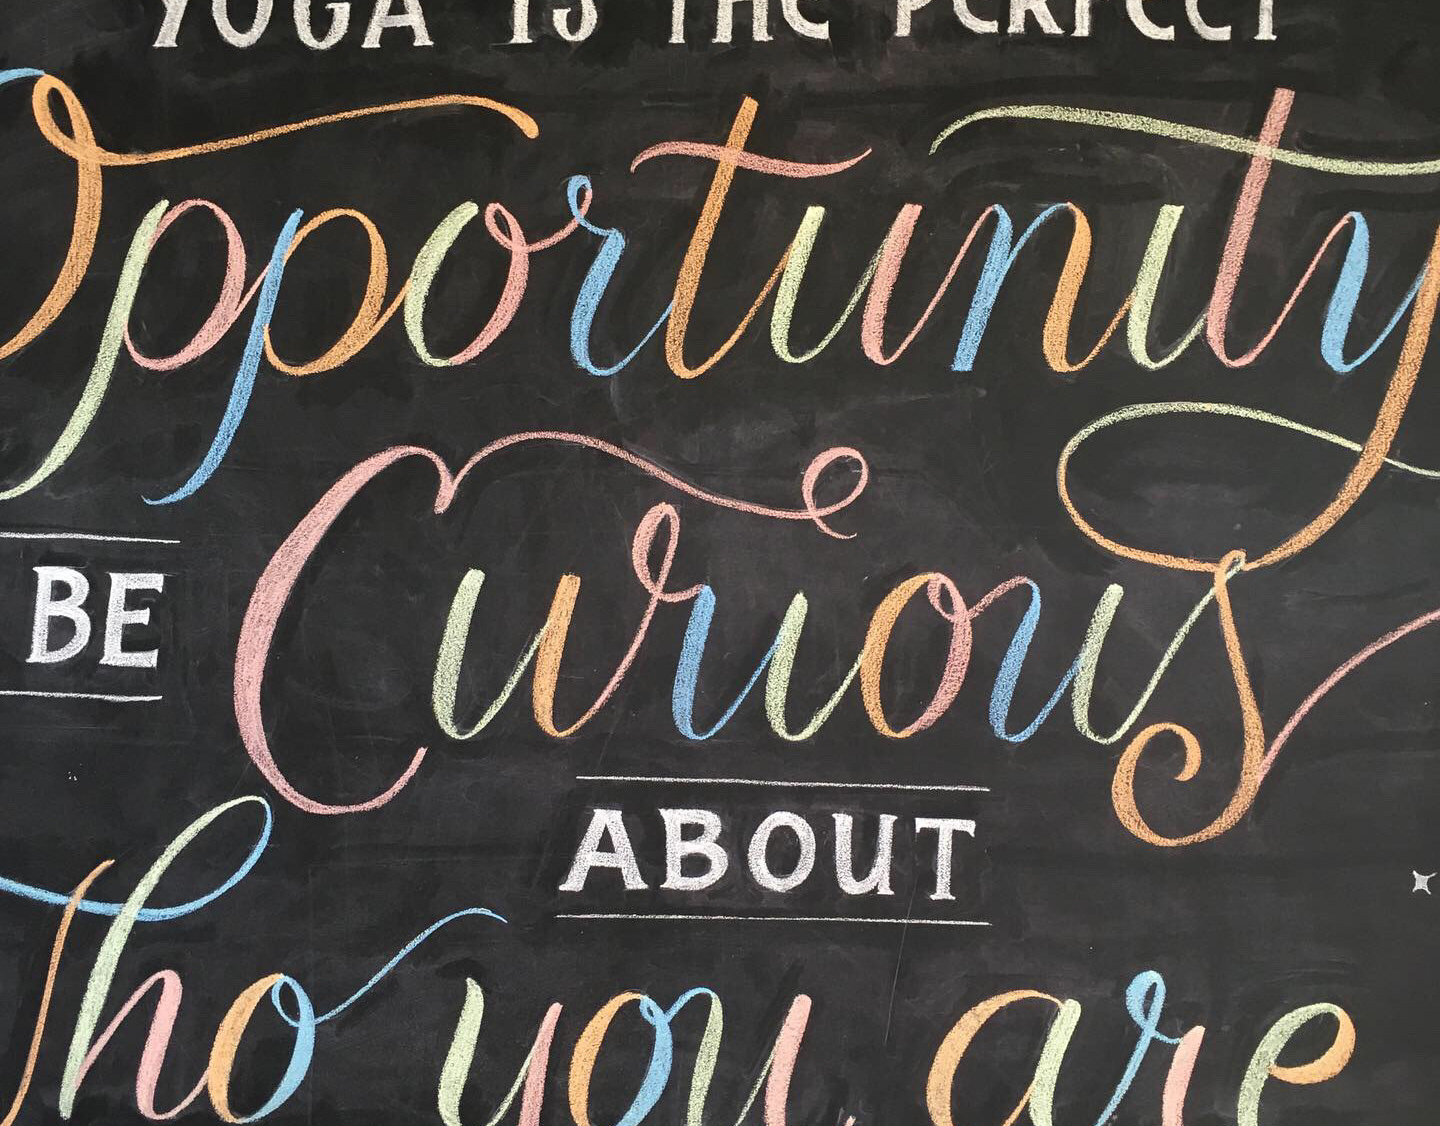 YOGA IS THE PERFECT
Opportunity
BE Curious
ABOUT
Who you are